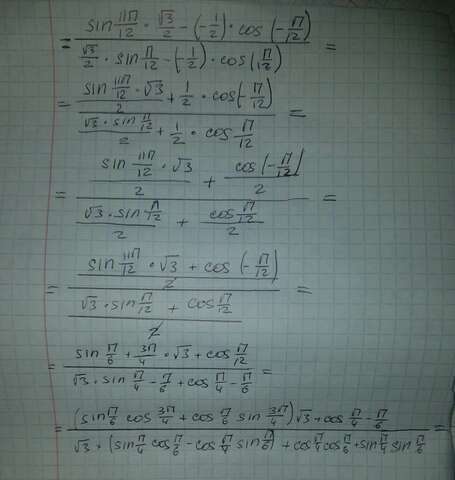 = (sin 11π/12 · √3/2 − (−1/2) · cos(−π/12)) / (√3/2 · sin π/12 − (−1/2) · cos(π/12)) =
= ((sin 11π/12 · √3)/2 + 1/2 · cos(−π/12)) / ((√3 · sin π/12)/2 + 1/2 · cos π/12) =
= ((sin 11π/12 · √3)/2 + cos(−π/12)/2) / ((√3 · sin π/12)/2 + (cos π/12)/2) =
= ((sin 11π/12 · √3 + cos(−π/12))/2) / ((√3 · sin π/12 + cos π/12)/2) =
= (sin π/6 + 3π/4 · √3 + cos π/12) / (√3 · sin π/4 − π/6 + cos π/4 − π/6) =
= ((sin π/6 cos 3π/4 + cos π/6 sin 3π/4)√3 + cos π/4 − π/6) / (√3 · (sin π/4 cos π/6 − cos π/4 sin π/6) + cos π/4 cos π/6 + sin π/4 sin π/6) =